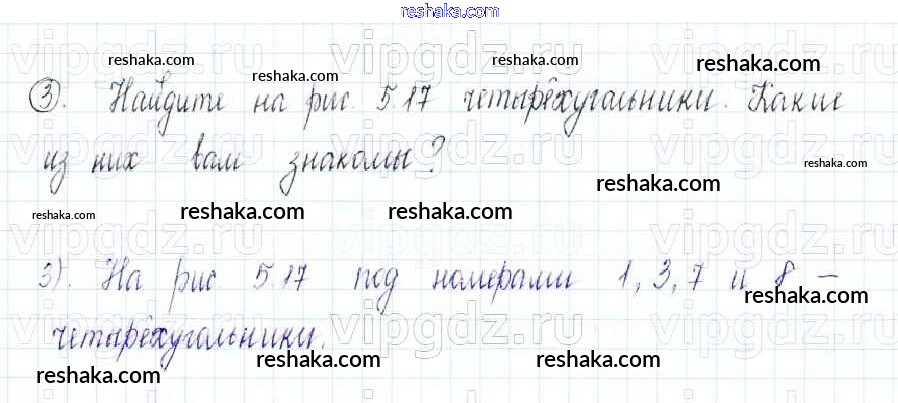 reshaka.com
reshaka.com reshaka.com
reshaka.com reshaka.com
3). Найдите на рис. 5.17 четырёхугольники. Какие
из них вам знакомы?
reshaka.com
reshaka.com
reshaka.com reshaka.com reshaka.com
3). На рис 5.17 под номерами 1, 3, 7 и 8 –
четырёхугольники.
reshaka.com reshaka.com reshaka.com
vipgdz.ru